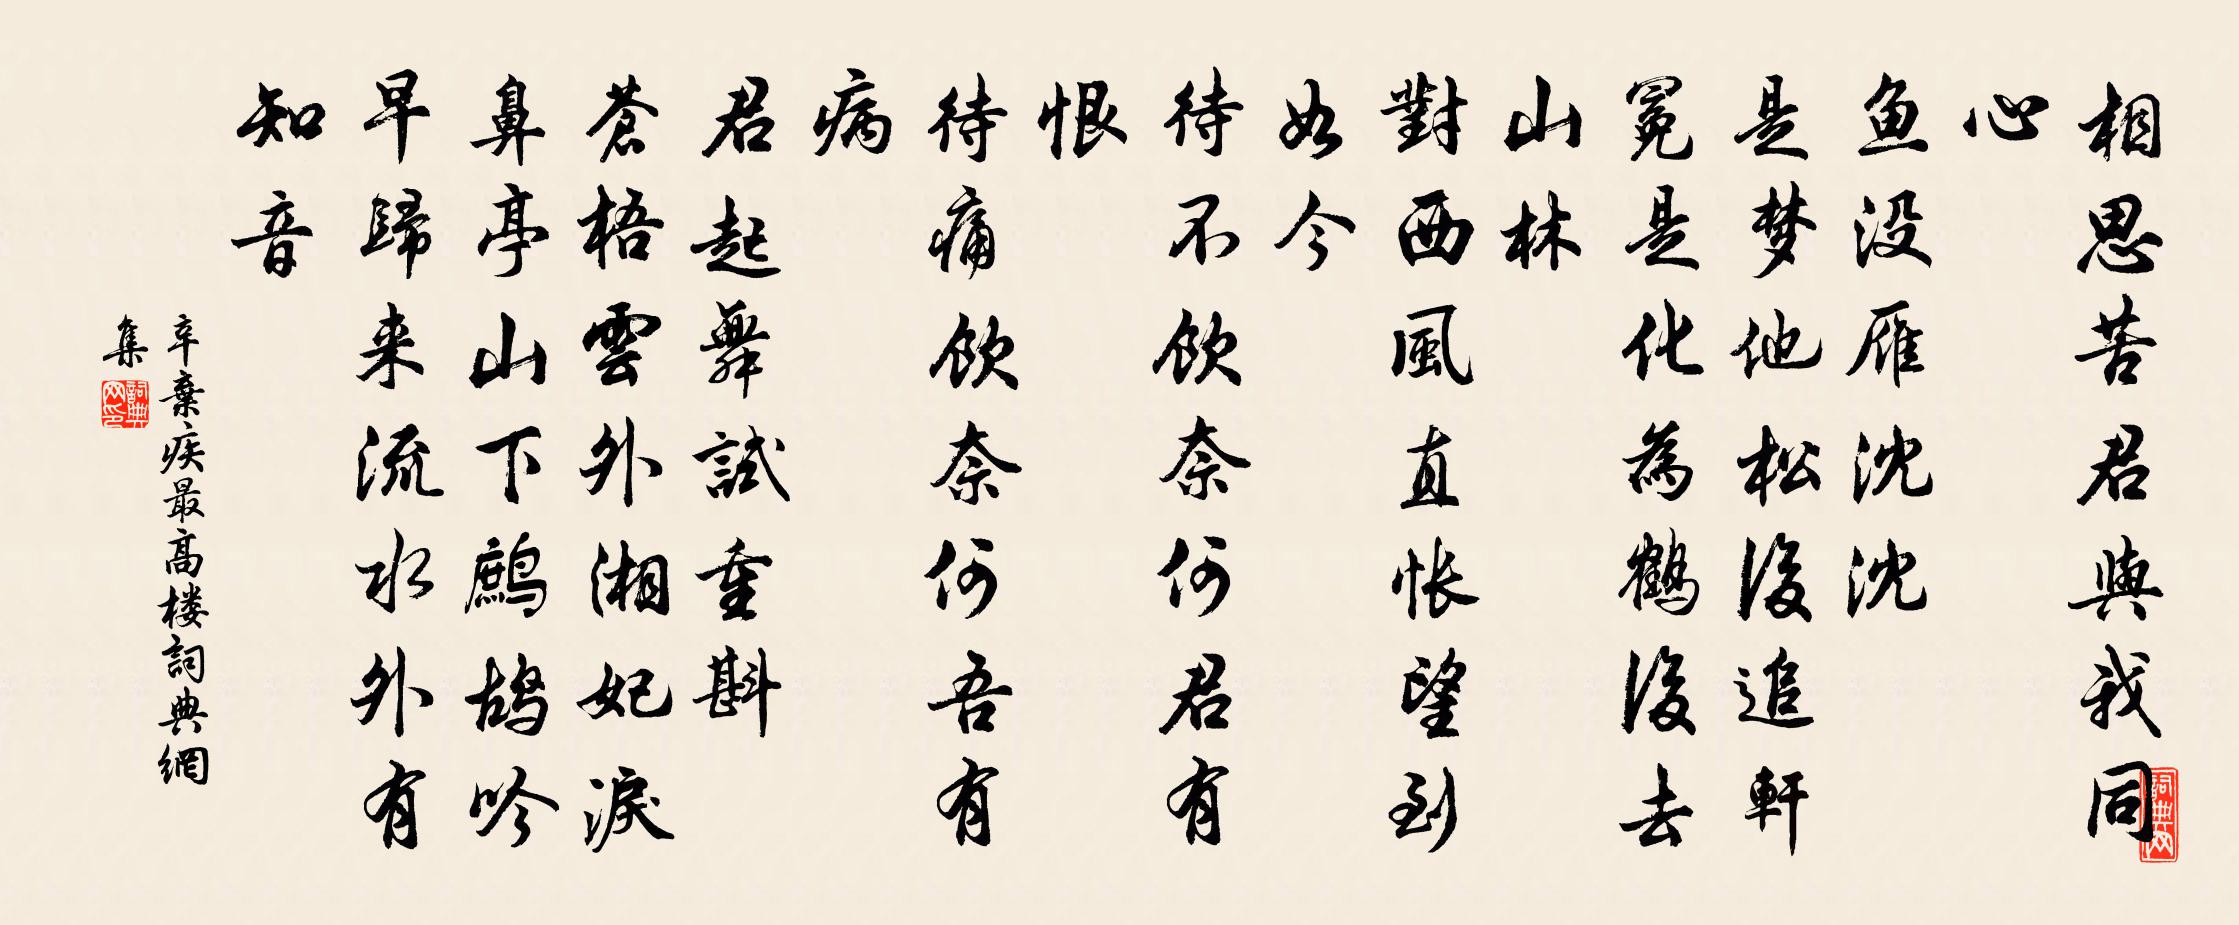 相思苦君與我同
心
魚没雁沈沈
是梦他松後追軒
冕是化為鶴後去
山林
對西風直悵望到
如今
待不飲奈何君有
恨
待痛飲奈何吾有
病
君起舞試重斟
蒼梧雲外湘妃淚
鼻亭山下鷓鴣吟
早歸来流水外有
知音
辛棄疾最高楼詞典網
集
詞典网印
詞典网